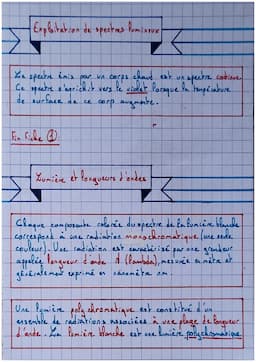 Exploitation de spectres lumineux
Le spectre émis par un corps chaud est un spectre continu.
Ce spectre s'enrichit vers le violet lorsque la température
de surface de ce corp augmente.
Fin Fiche ①.
Lumière et longueurs d'ondes
Chaque composante colorée du spectre de la lumière blanche
correspond à une radiation monochromatique (une seule
couleur). Une radiation est caractérisé par une grandeur
appelée longueur d'onde λ (lambda), mesurée en mètre et
généralement exprimé en nanomètre nm.
Une lumière polychromatique est constitué d'un
ensemble de radiations associées à une plage de longueur
d'onde. La lumière blanche est une lumière polychromatique.